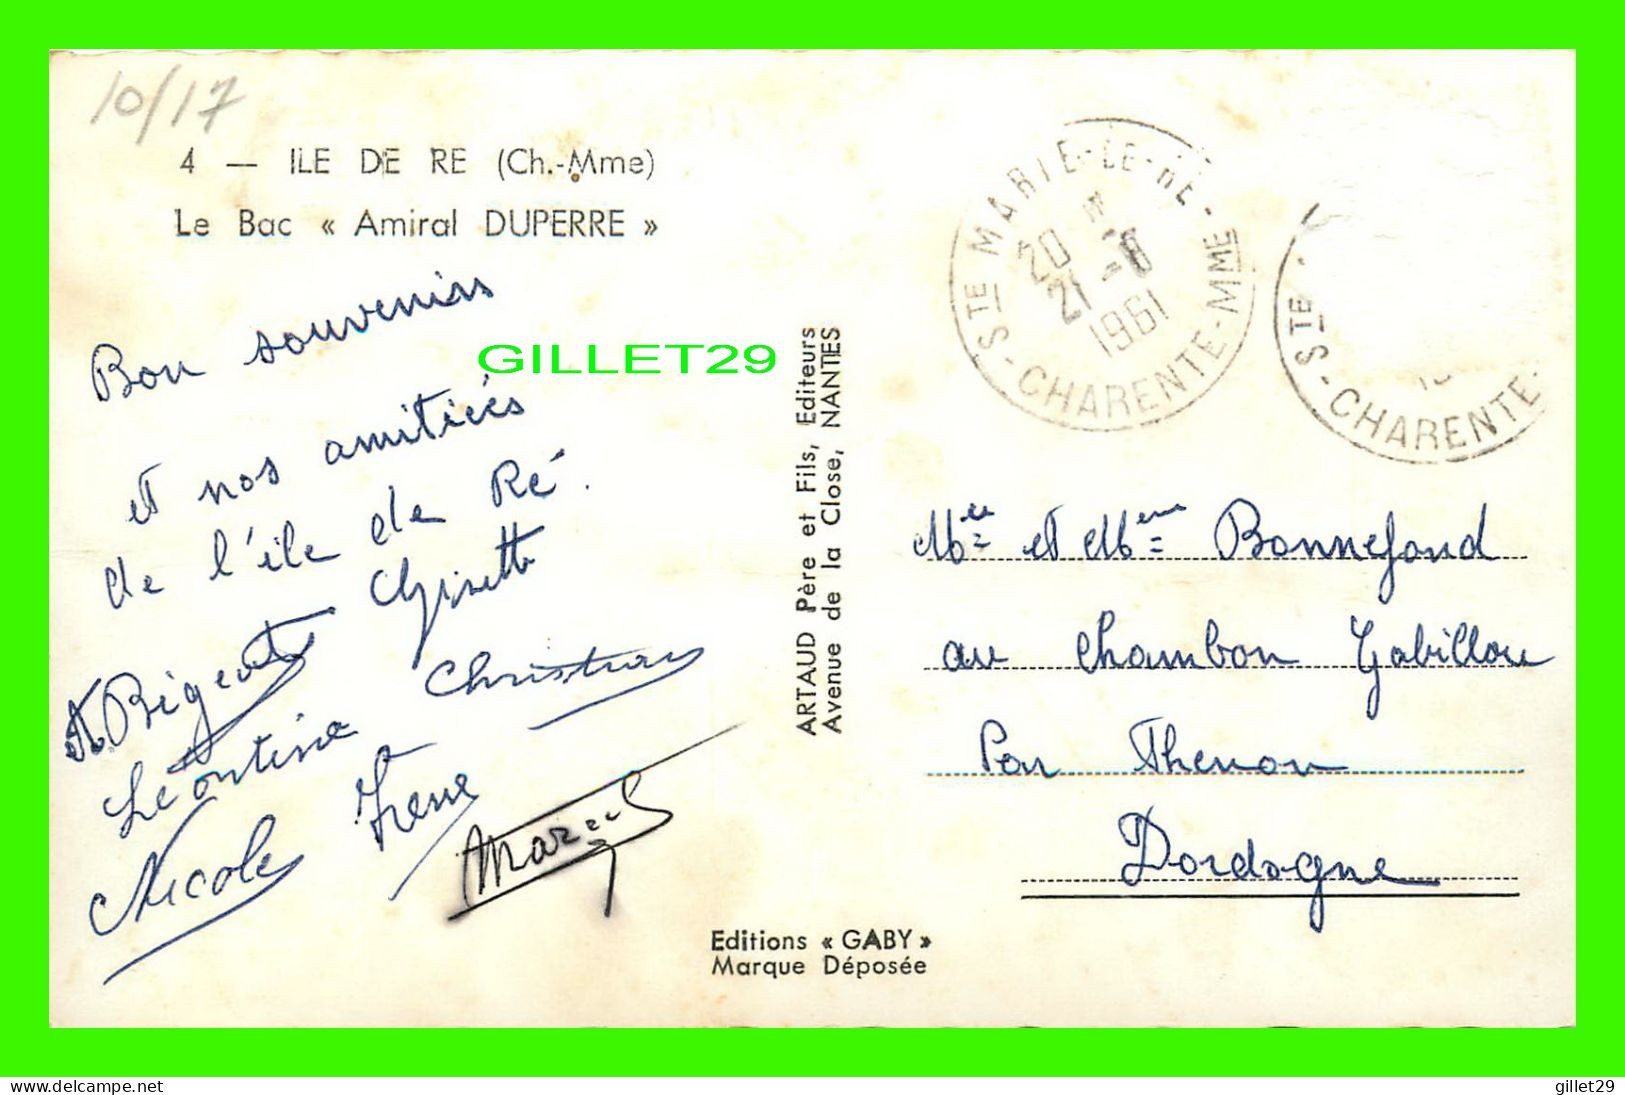 10/17
4 — ILE DE RE (Ch.-Mme)
Le Bac « Amiral DUPERRE »
Bon souvenirs
et nos amitiées
de l'île de Ré.
Ghisette
Bigeat
Christian
Léontine
Irene
Nicole
Marcel
GILLET29
ARTAUD Père et Fils, Editeurs
Avenue de la Close, NANTES
Editions « GABY »
Marque Déposée
STE MARIE-LE-RE - CHARENTE-MME
20
21 -8
1961
STE - CHARENTE-
Mr et Mme Bonnefond
au Chambon Gabillou
Par Thenon
Dordogne
www.delcampe.net
gillet29